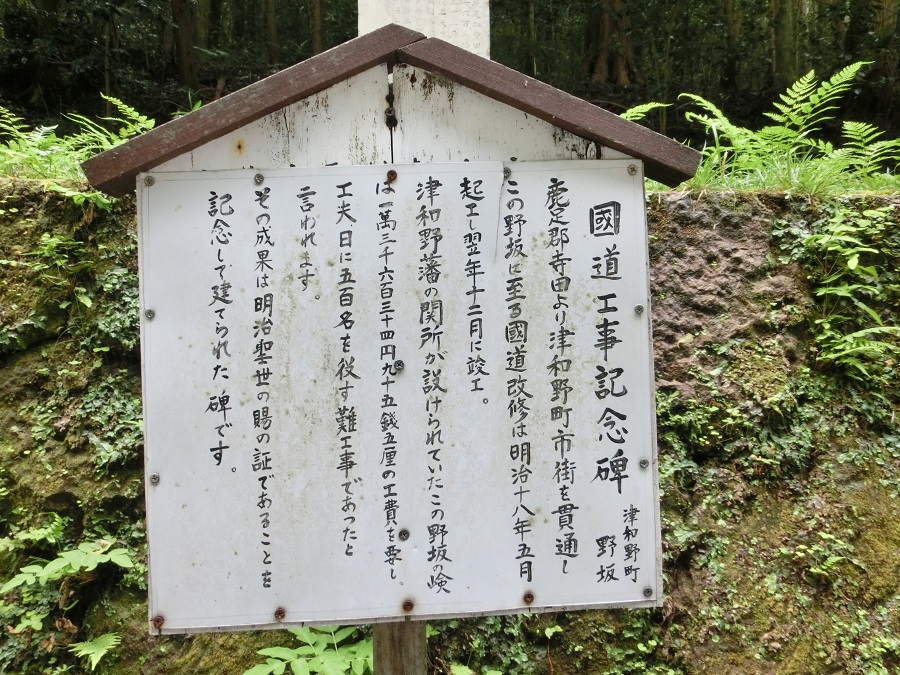 國道工事記念碑
津和野町
野坂
鹿足郡寺田より津和野町市街を貫通し
この野坂に至る國道改修は明治十八年五月
起工し翌年十二月に竣工。
津和野藩の関所が設けられていたこの野坂の険
は一萬三千六百三十四円九十五銭五厘の工費を要し、
工夫、日に五百名を役す難工事であったと
言われます。
その成果は明治聖世の賜の証であることを
記念して建てられた碑です。